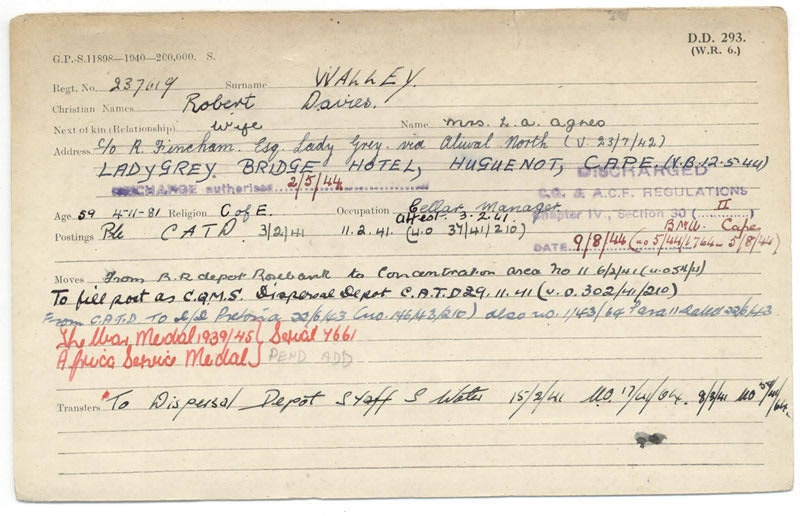 D.D. 293.
(W.R. 6.)
G.P.-S.11898—1940—200,000. S.
Regt. No. 237619 Surname WALLEY.
Christian Names Robert Davies.
Next of kin (Relationship) Wife Name Mrs. L. A. Agnes
Address c/o R. Fincham. Esq. Lady Grey. via Aliwal North (V. 23/7/42)
LADYGREY BRIDGE HOTEL, HUGUENOT, CAPE. (V.B. 12.5.44)
CHANGE authorised 2/5/44
DISCHARGED
C.G. & A.C.F. REGULATIONS
Chapter IV., Section 30 (II)
B.M.B. Cape
DATE 9/8/44 (uo 5/44/1764 - 5/8/44)
Age 59 4-11-81 Religion C of E. Occupation Cellar Manager
attest. 3.2.41.
Postings Pte CATD 3/2/41 11.2.41. (u.o 37/41/210)
Moves From B.R. depot Rosebank to Concentration area No 11 6/2/41
To fill post as C.Q.M.S. Dispersal Depot C.A.T.D 29.11.41 (u.o. 302/41/210)
From C.A.T.D To D/D Pretoria 22/6/43 (uo. 146/43/210) also no. 1/43/64 Para 11 dated 22/6/43
The War Medal 1939/45 } Serial 4661
Africa Service Medal } PEND ADD
Transfers To Dispersal Depot Staff S Water 15/2/41 UO. 17/41/64. 8/3/41 UO